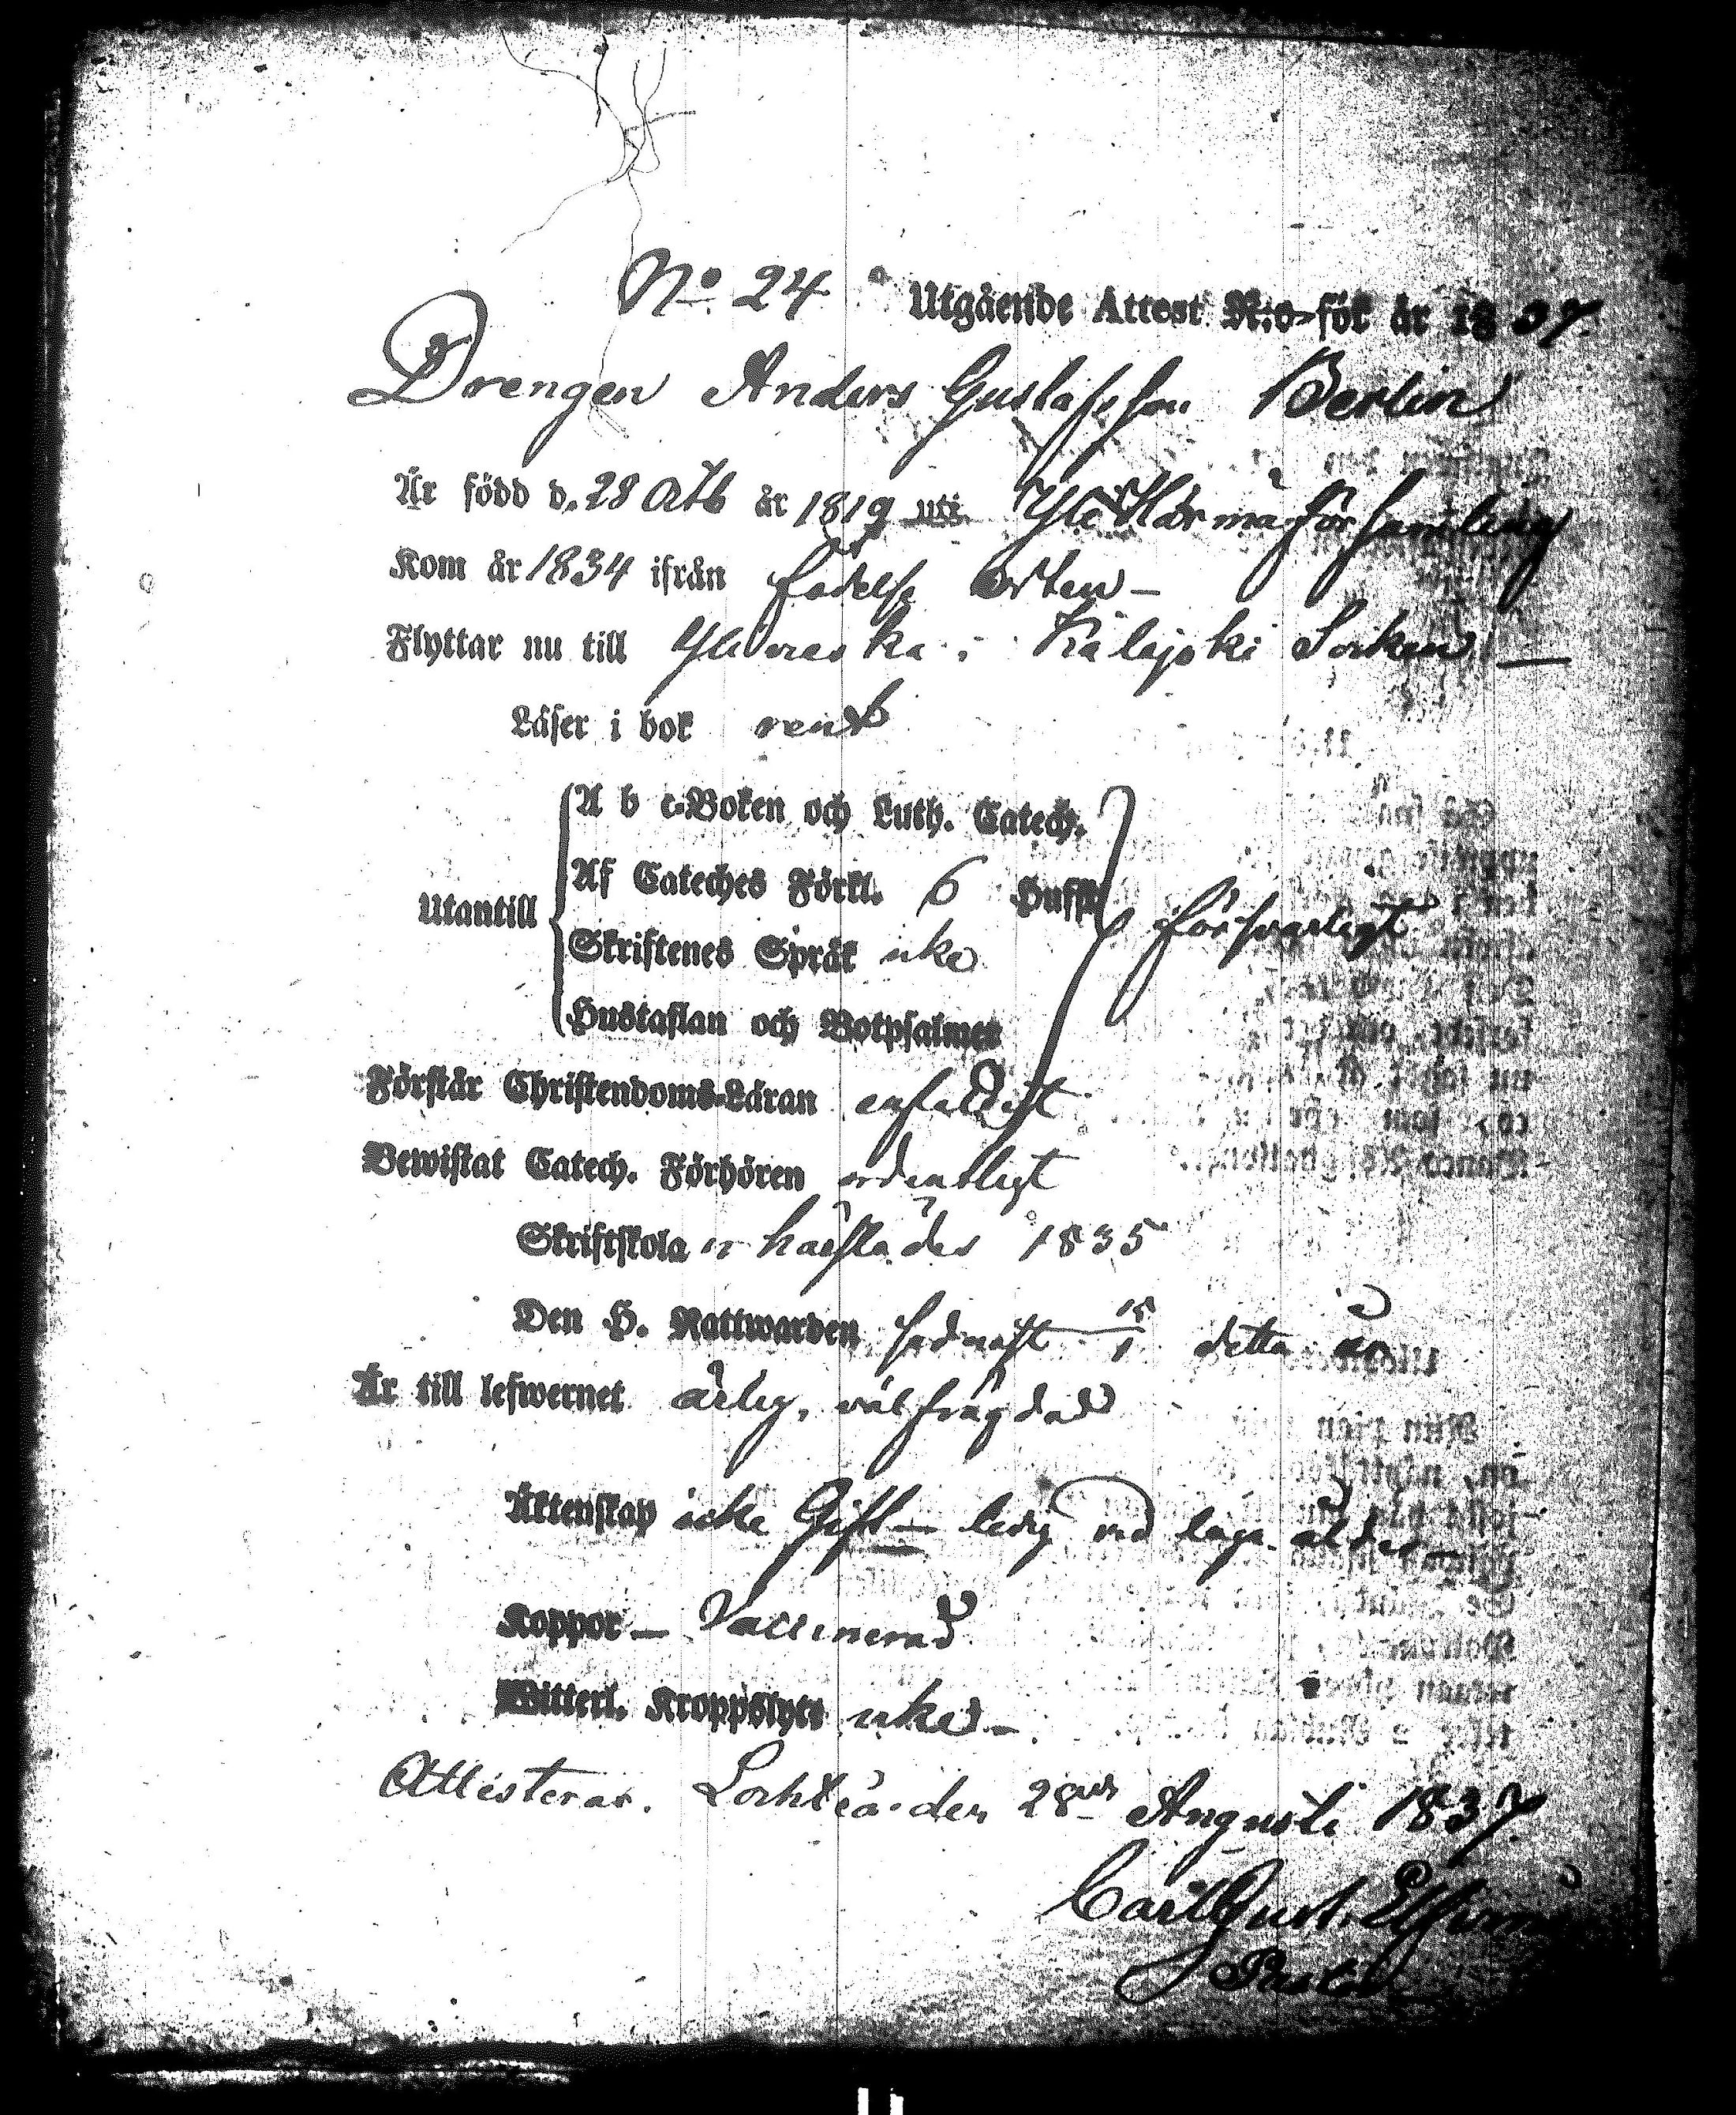 No. 24 Utgående Attest N:o för år 1837.
Drengen Anders Gustafsson Berlin
Är född d. 28 Octb år 1819 uti Yle Härmä församling
Kom år 1834 ifrån födelse orten –
Flyttar nu till Ylivieska i Kalajoki Socken –
Läser i bok rent
A b c-Boken och Luth. Catech.
Af Cateches Förkl. 6 Hufst.
Utantill försvarligt
Skriftenes Språk icke
Hustaflan och Botpsalmer
Förstår Christendoms-Läran enfaldigt
Bewistat Catech. Förhören ordentligt
Skriftskola 1835
Den H. Nattwarden sednast i detta år
Är till lefwernet ärlig, välfrägdad
Äktenskap icke Gift – ledig laga ålder
Koppor – Vaccinerad
Witterl. Kroppslyte icke –
Attesterar. Lochteå den 28 Augusti 1837.
Carl Gust.
Pastor